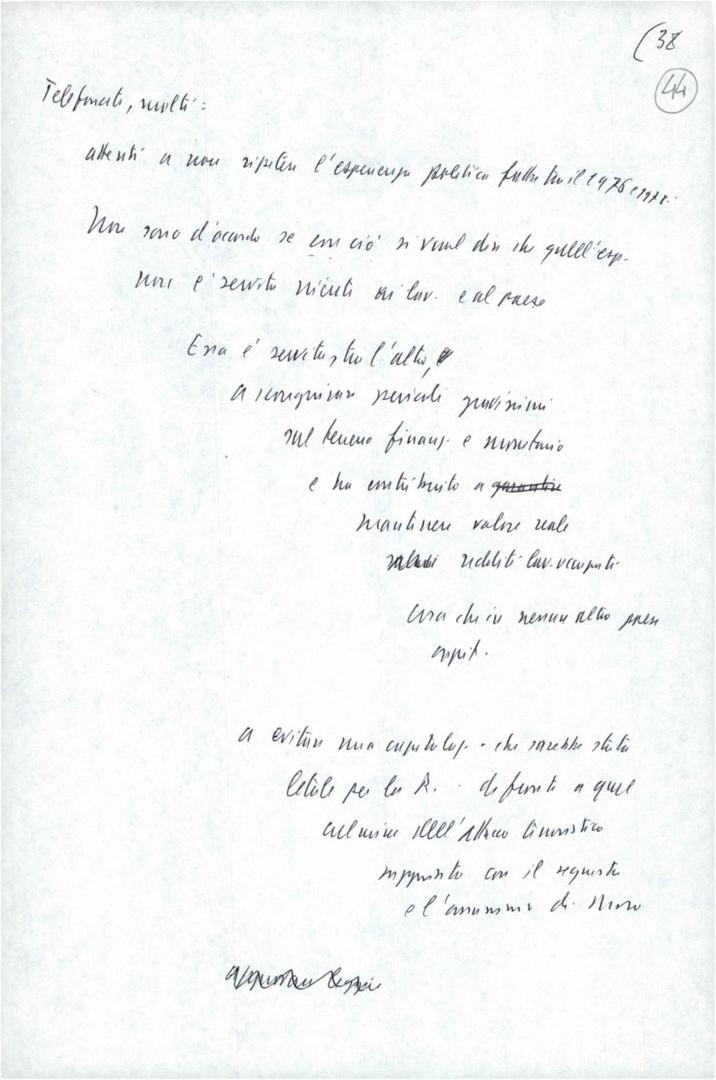 (38
44
Telefonate, molti:
attenti a non ripetere l'esperienza politica fatta tra il 1976 e 1978.
Non sono d'accordo se con ciò si vuol dire che quell'esp.
non è servita niente ai lav. e al paese
Essa è servita, tra l'altro,
a scongiurare pericoli gravissimi
sul terreno finanz. e monetario
e ha contribuito a garantire
mantenere valore reale
salari redditi lav. occupati
cosa che in nessun altro paese
capit.
a evitare una capitolaz. - che sarebbe stata
letale per la R. - di fronte a quel
culmine dell'attacco terroristico
rappresentato con il sequestro
e l'assassinio di Moro